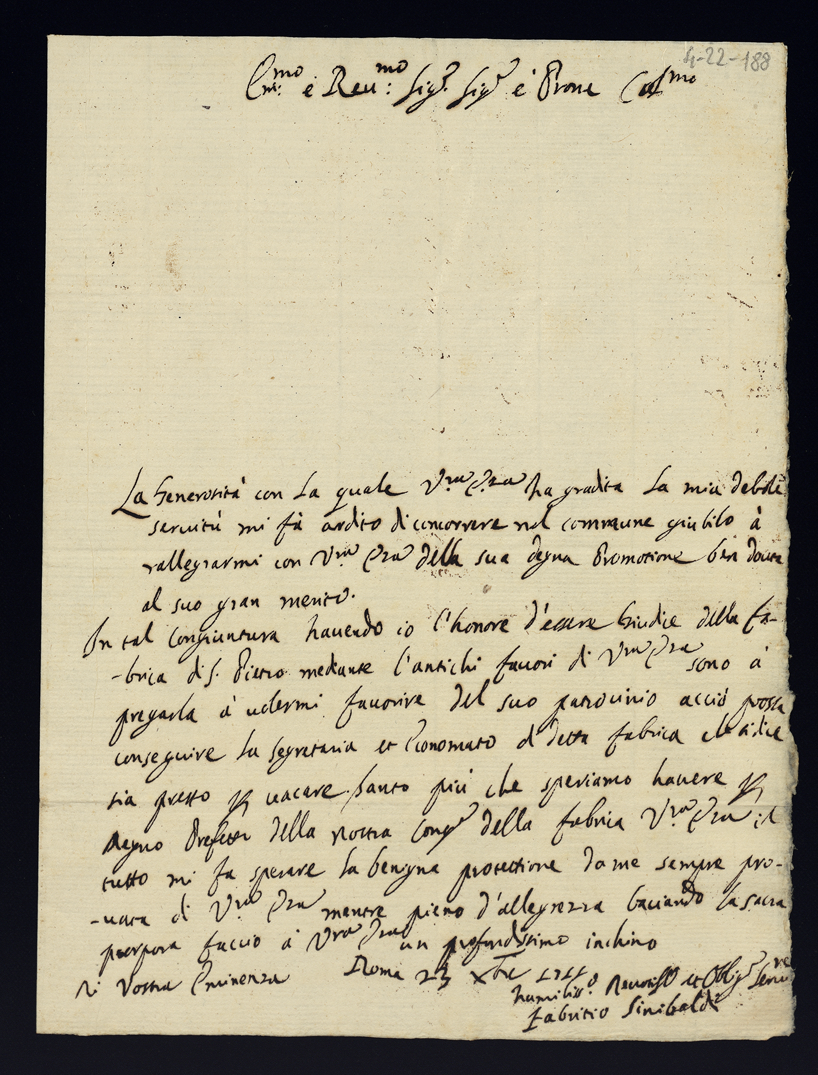 4-22-188
Em:mo é Reu:mo Sig.r Sig.r é Prone Col.mo
La Generosità con la quale V.ra E.za ha gradita la mia debole
seruitù mi fà ardito di concorrere nel commune giubilo à
rallegrarmi con V.ra E.za della sua degna Promotione ben douta
al suo gran merito.
In tal congiuntura hauendo io l'honore d'essere Giudice della fa-
-brica di S. Pietro mediante l'antichi fauori di V.ra E.za sono à
pregarla à uolermi fauorire del suo patrocinio acciò possa
conseguire la segretaria et Economato di detta fabrica che si dice
sia presto p uacare. tanto più che speriamo hauere p
degno Prefetto della nostra Cong.e della fabrica V.ra E.za; il
tutto mi fa sperare la benigna protettione da me sempre pro-
-uata di V.ra E.za mentre pieno d'allegrezza baciando la sacra
porpora faccio à V.ra E.za un profondissimo inchino
Di Vostra Eminenza Roma 23 Xbre
humiliss.o Deuotiss.o et Oblig.o Serure
Fabritio Sinibaldi